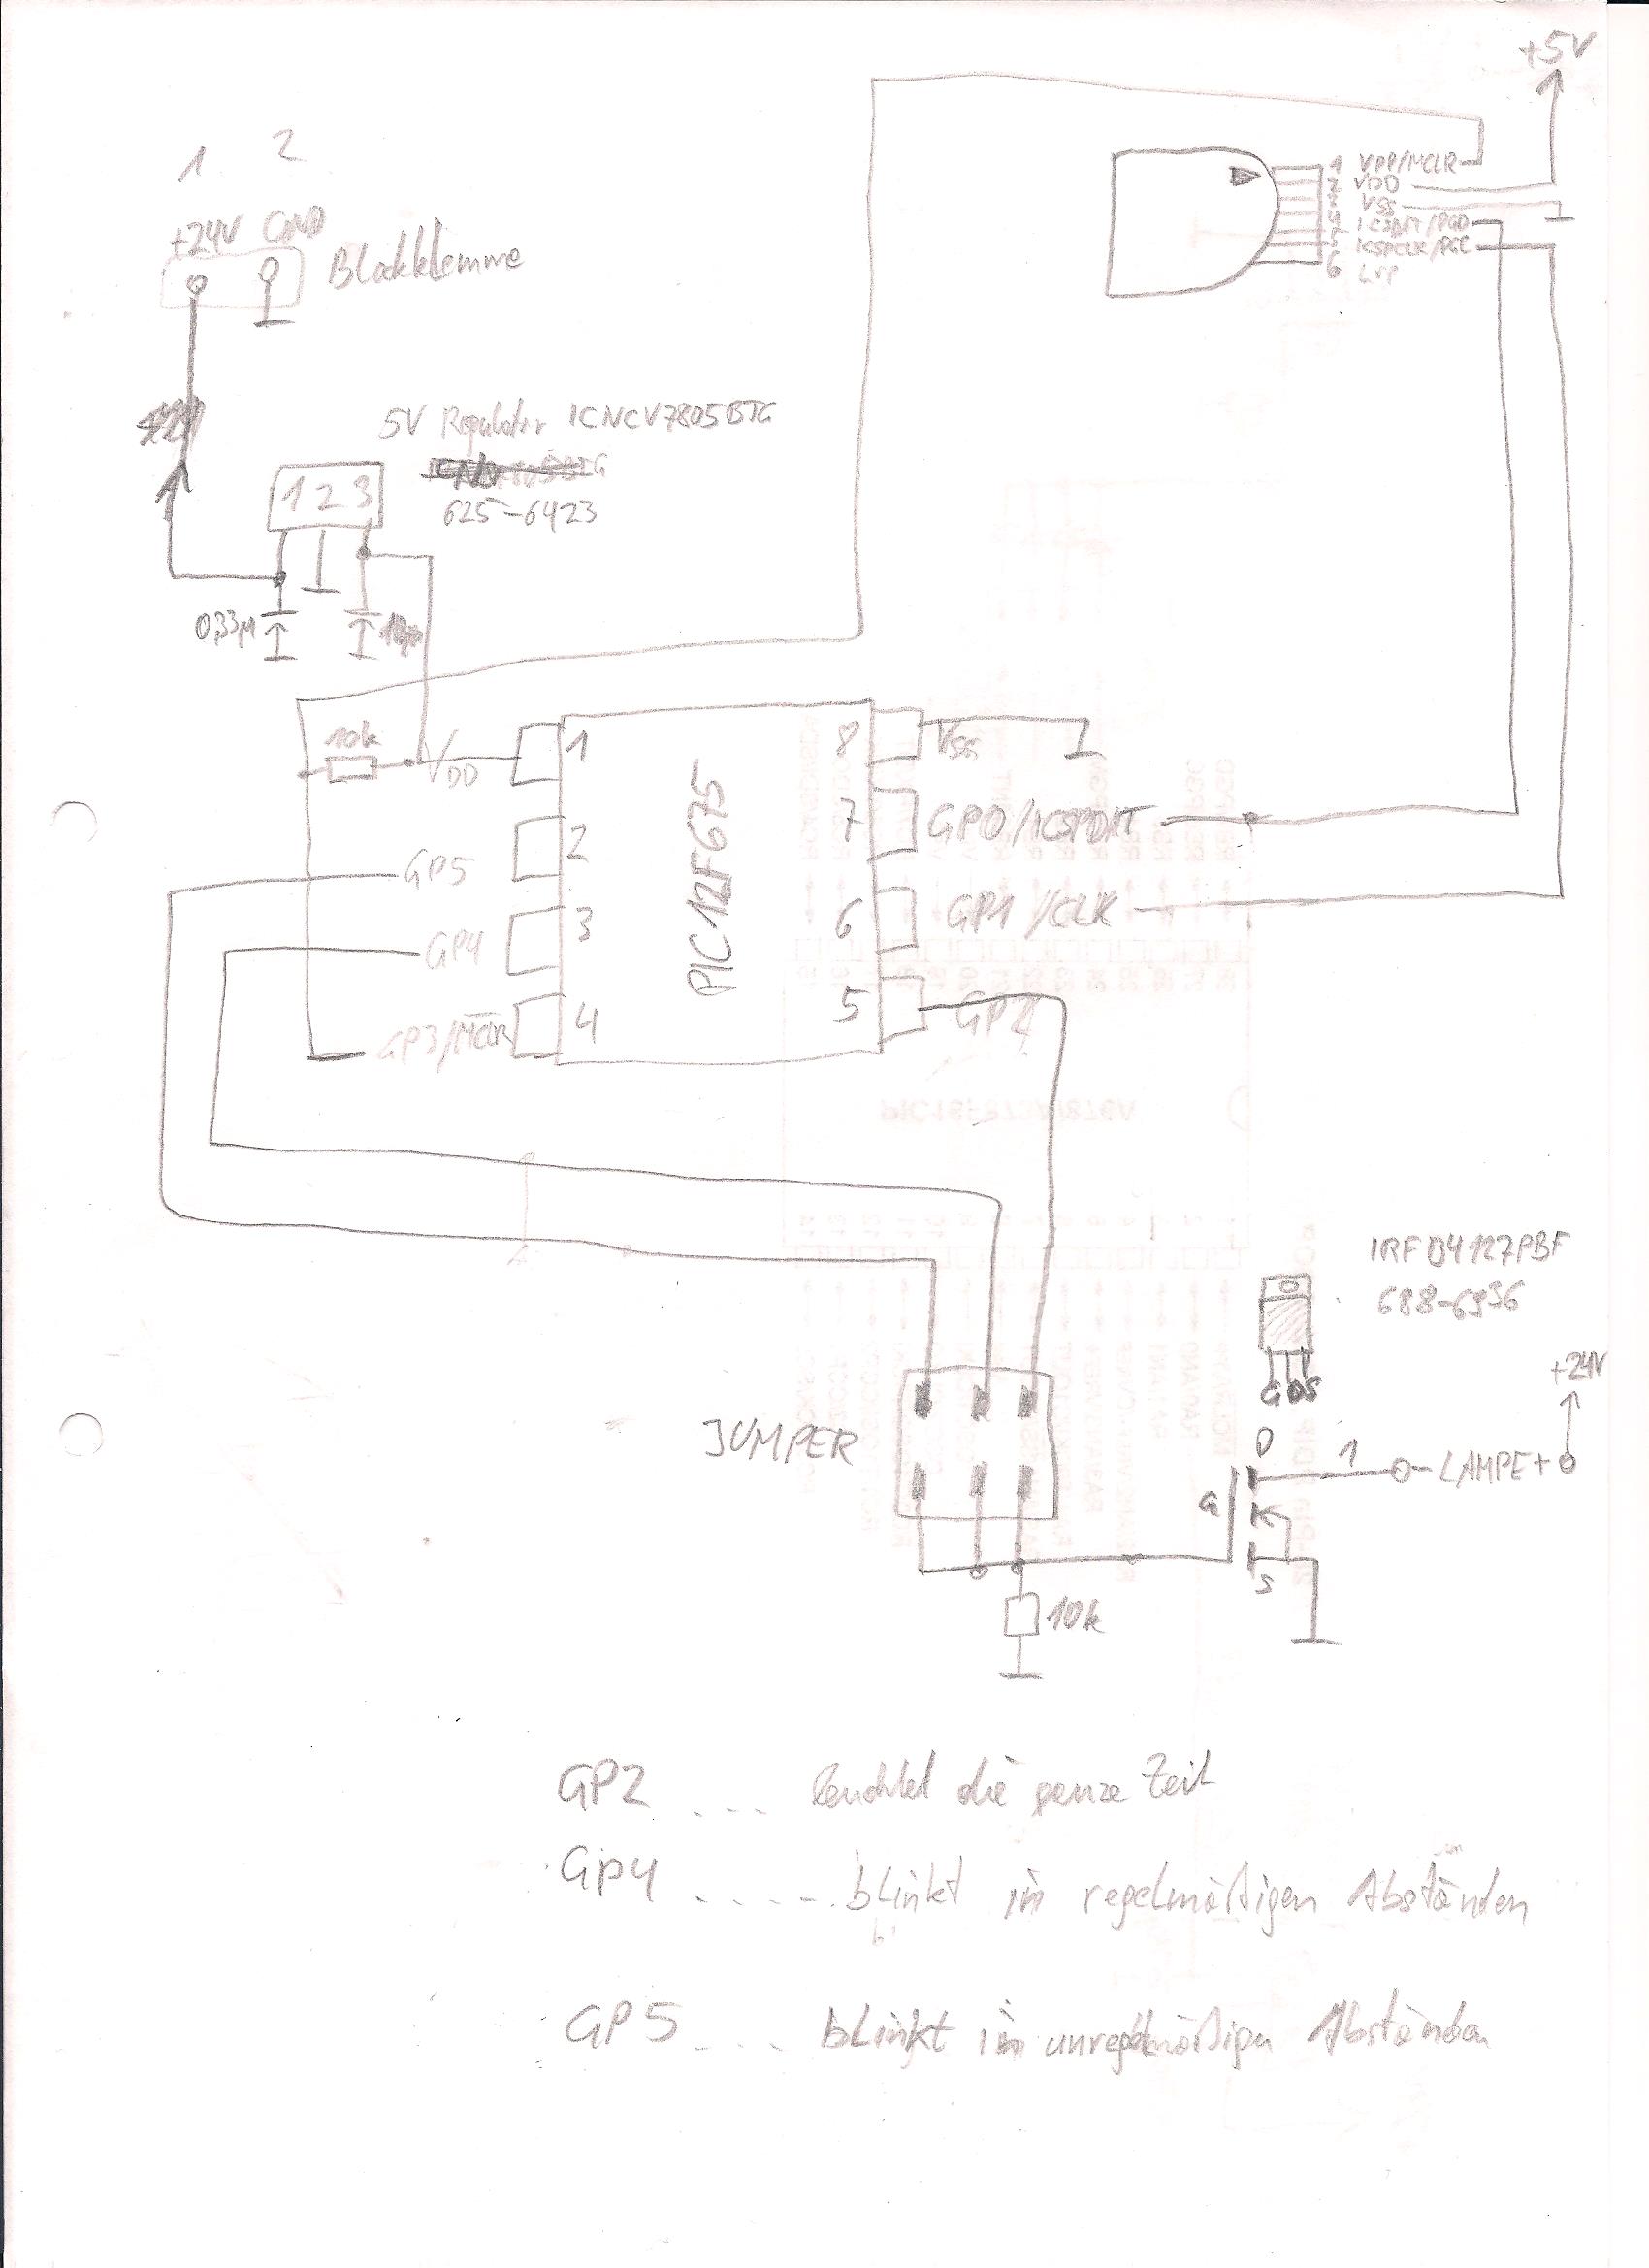 +5V
1 2
+24V GND
Blockklemme
1 VPP/MCLR
2 VDD
3 VSS
4 ICSPDAT/PGD
5 ICSPCLK/PGC
6 LVP
5V Regulator ICNCV7805BTG
625-6423
1 2 3
0,33µ
10k
VDD
1
8
VSS
PIC12F675
2
7
GP0/ICSPDAT
GP5
3
6
GP1/CLK
GP4
4
5
GP2
GP3/MCLR
IRFB4127PBF
688-6936
GDS
+24V
JUMPER
D
1
LAMPE+
G
S
10k
GP2 ... leuchtet die ganze Zeit
GP4 ..... blinkt in regelmäßigen Abständen
GP5 ... blinkt in unregelmäßigen Abständen